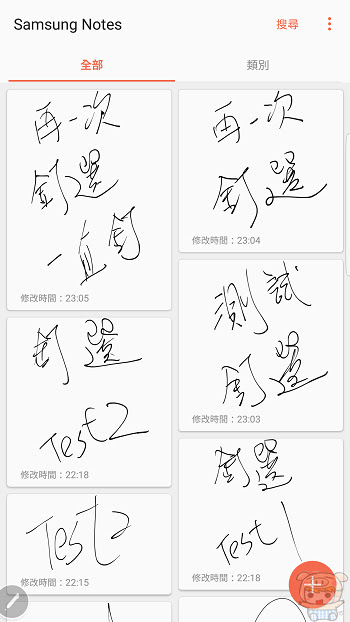 Samsung Notes
搜尋
全部
類別
再一次
釘選
一直釘
修改時間：23:05
再一次
釘選
修改時間：23:04
釘選
Test2
修改時間：22:18
測試
釘選
修改時間：23:03
Test2
修改時間：22:15
釘選
Test 1
修改時間：22:18